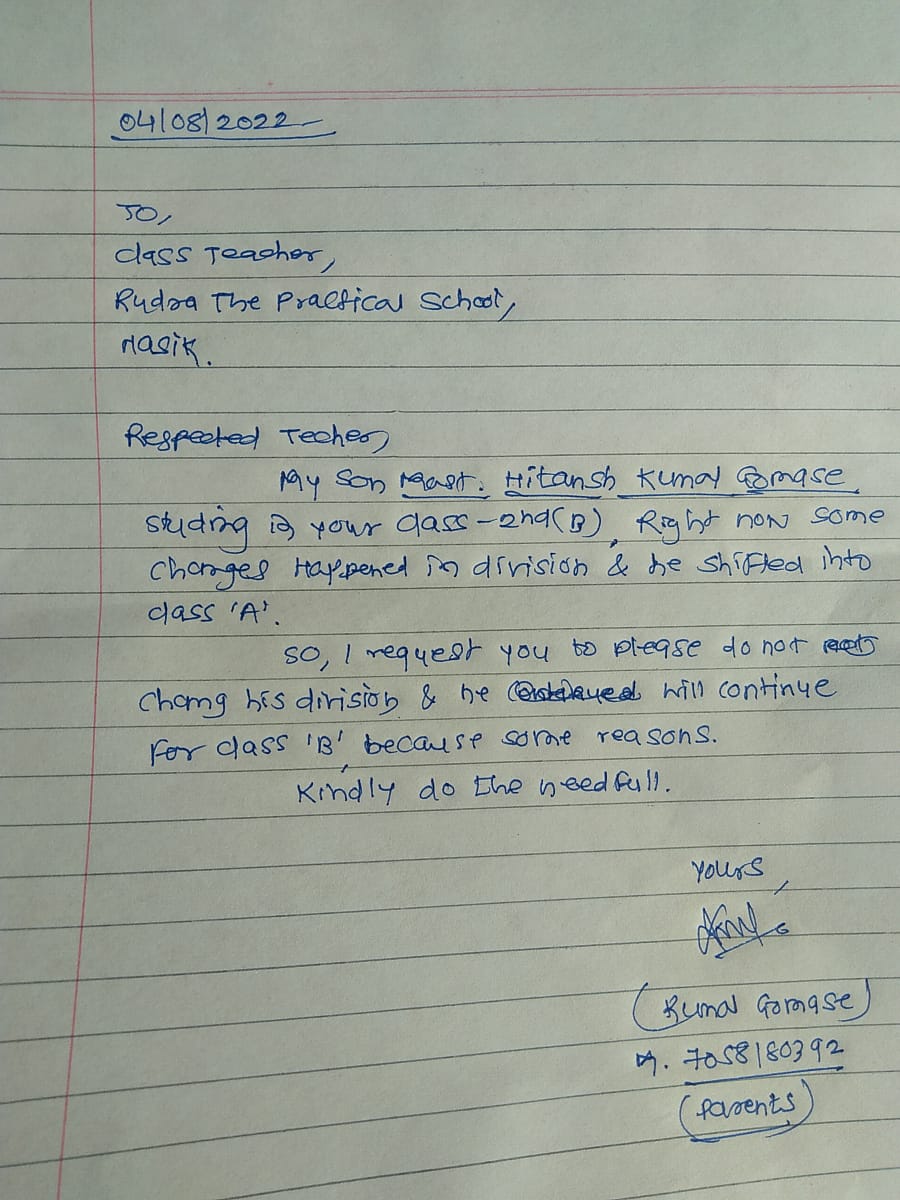 04/08/2022
TO,
Class Teacher,
Rudra The Practical School,
Nasik.
Respected Techer,
My Son Mast. Hitansh Kunal Gomase
studing in your class-2nd(B), Right now some
changes Happened in division & he shifted into
class 'A'.
SO, I request you to please do not
chang his division & he will continue
For class 'B', because some reasons.
Kindly do the needfull.
Yours,
(Kunal Gomase)
M. 7058180392
(Parents)